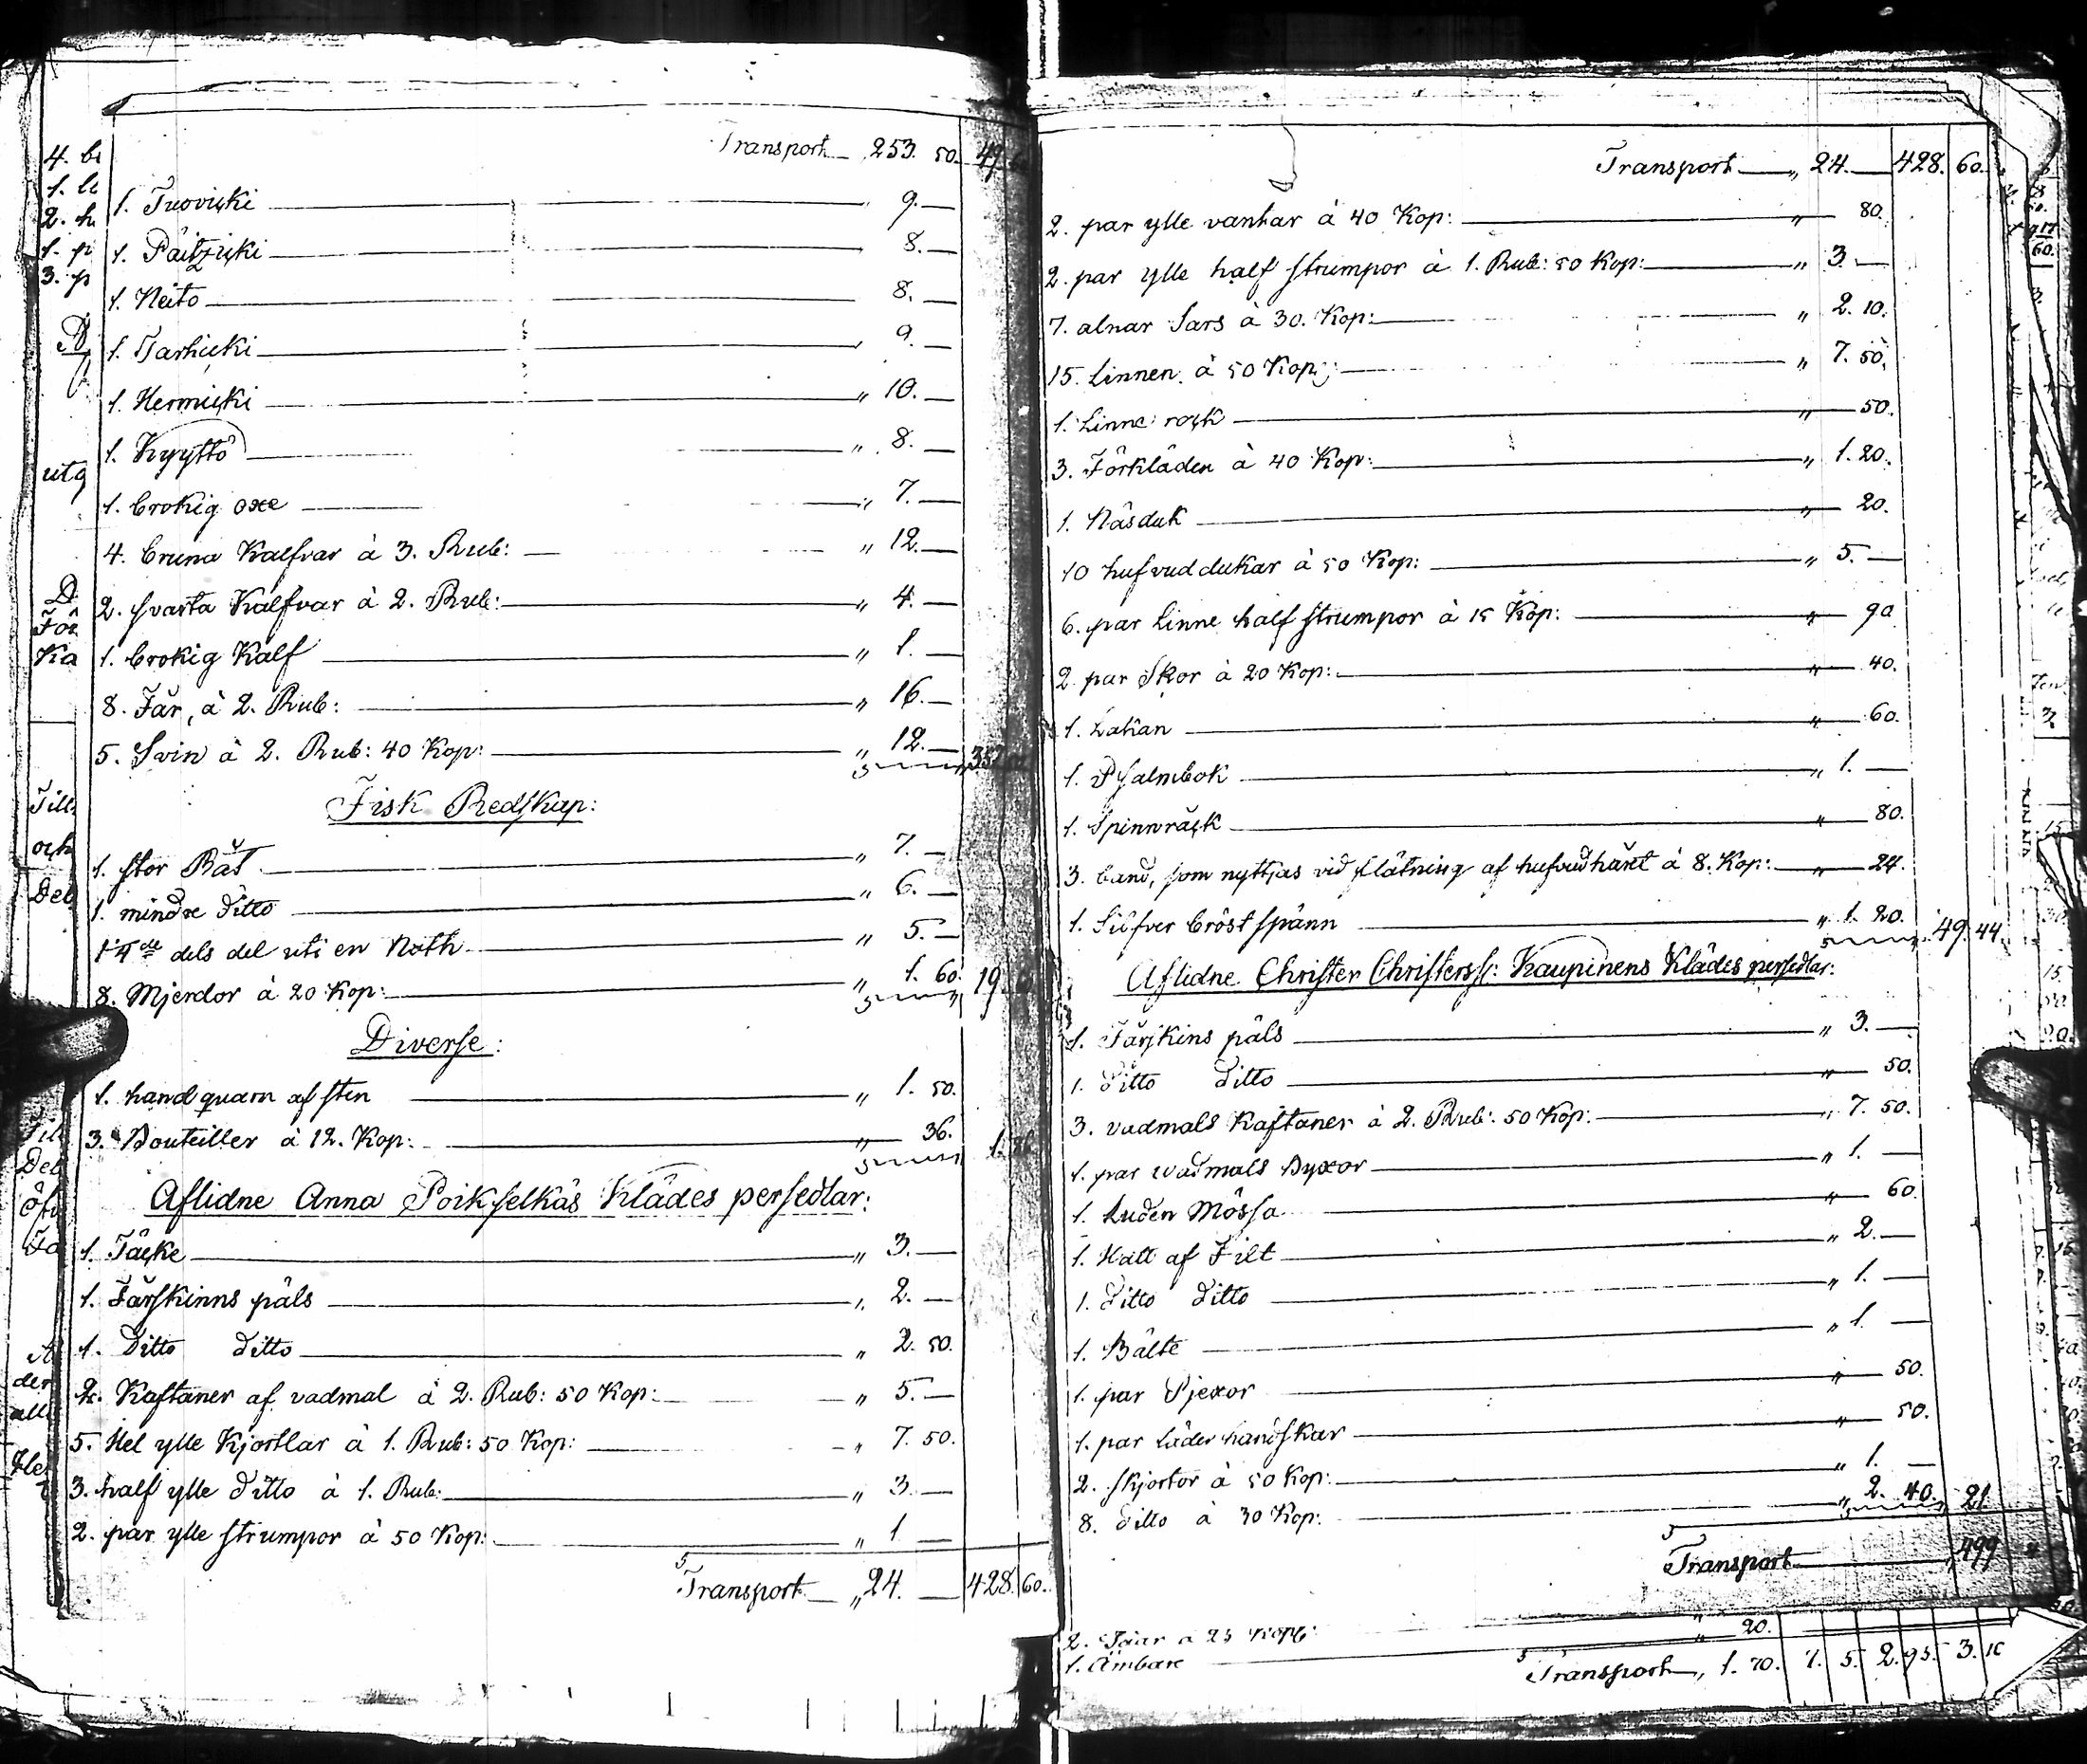 Transport 253. 50. 49.
1. Tuovicki „ 9. —
1. Päitzicki „ 8. —
1. Neito 8. —
1. Tarhicki „ 9. —
1. Hermicki „ 10. —
1. Kyyttö „ 8. —
1. brokig oxe „ 7. —
4. bruna Kalfvar à 3. Rub: — „ 12. —
2. svarta Kalfvar à 2. Rub: „ 4. —
1. brokig Kalf „ 1. —
8. Får, à 2. Rub: „ 16. —
5. Svin à 2. Rub: 40 Kop: „ 12. —
Fisk Redskap:
1. stor Båt „ 7. —
1. mindre ditto „ 6. —
1 4de dels del uti en Noth „ 5. —
8. Mjerdor à 20 Kop: „ 1. 60. 19.
Diverse:
1. handquarn af sten „ 1. 50.
3. Bouteiller à 12. Kop: „ 36. 1.
Aflidne Anna Poikselkäs Klädes persedlar:
1. Täcke „ 3. —
1. Fårskinns päls „ 2. —
1. Ditto Ditto „ 2. 50.
2. Kaftaner af vadmal à 2. Rub: 50 Kop: „ 5. —
5. Hel ylle Kjortlar à 1. Rub: 50 Kop: „ 7. 50.
3. half ylle ditto à 1. Rub: „ 3. —
2. par ylle strumpor à 50 Kop: „ 1 —
Transport „ 24. — 428. 60.
Transport „ 24. — 428. 60.
2. par ylle vantar à 40 Kop: „ 80.
2. par ylle half strumpor à 1. Rub: 50 Kop: „ 3. —
7. alnar Sars à 30. Kop: „ 2. 10.
15. Linnen à 50 Kop: „ 7. 50.
1. Linne rock „ 50.
3. Förkläden à 40 Kop: „ 1. 20.
1. Näsduk „ 20.
10 hufvuddukar à 50 Kop: „ 5. —
6. par Linne half strumpor à 15 Kop: „ 90
2. par Skor à 20 Kop: „ 40.
1. Lakan „ 60.
1. Psalmbok „ 1. —
1. Spinnråck „ 80.
3. band, som nyttjas vid flätning af hufvudhåret à 8. Kop: „ 24.
1. Silfver bröst spänn „ 1. 20. 49. 44.
Aflidne Christer Christerss: Kaupinens Klädes persedlar:
1. Fårskins päls „ 3. —
1. Ditto Ditto „ 50.
3. vadmals Kaftaner à 2. Rub: 50 Kop: „ 7. 50.
1. par vadmals Byxor „ 1. —
1. Luden Mössa „ 60.
1. Hatt af Filt „ 2. —
1. Ditto Ditto „ 1. —
1. Bälte „ 1. —
1. par Pjexor „ 50.
1. par Läder handskar „ 50.
2. Skjortor à 50 Kop: „ 1. —
8. ditto à 30 Kop: „ 2. 40. 21
Transport 499 „
2. à 25 Kop:
1. Ämbare „ 20.
Transport „ 1. 70. 7. 5. 2. 95. 3.